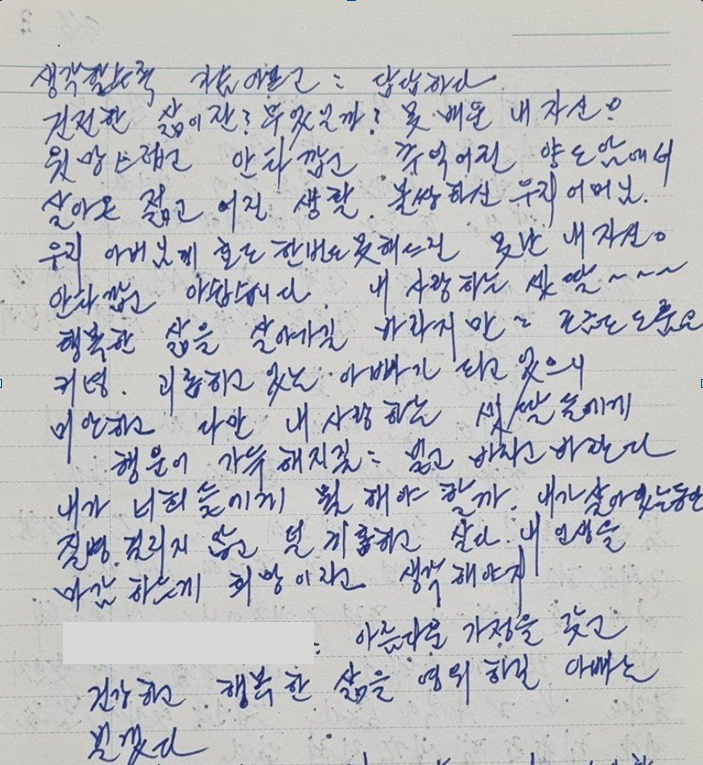 생각할수록 가슴 아프고 = 답답하다
건전한 삶이란? 무엇일까? 못 배운 내 자신이
원망스럽고 안타깝고 쭈억어진 양도앞에서
살아온 젊고 어진 생활. 불쌍하신 우리 어머님.
우리 아버님께 효도 한번도 못해드린 못난 내 자신이
안타깝고 아탑습니다. 내 사랑하는 셋딸 ~ ~ ~
행복한 삶을 살아가길 바라지만 = 도움도
커녕. 괴롭하고 있는 아빠가 되고 있으니
미안하고 다만 내 사랑하는 셋딸들에게
행운이 가득해지길 = 빌고 바라고 바란다
내가 너희들에게 뭘 해야 할까. 내가 살아있는동안
질병 걸리지 않고 덜 괴롭하고 살다. 내 인생을
마감 하는게 희망이라고 생각해야지
: 아름다운 가정을 갖고
건강하고 행복한 삶을 영위하길 아빠는
빌겠다